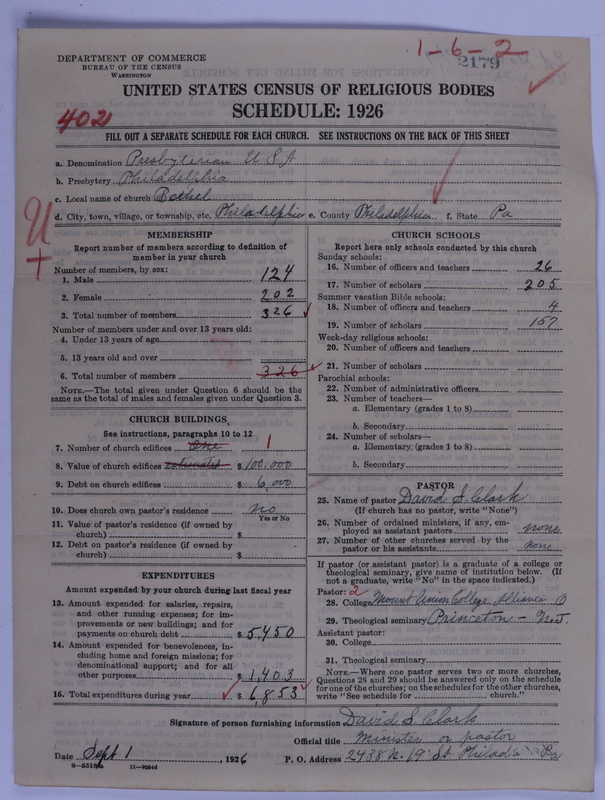 1-6-2
2179
DEPARTMENT OF COMMERCE
BUREAU OF THE CENSUS
WASHINGTON
UNITED STATES CENSUS OF RELIGIOUS BODIES
SCHEDULE: 1926
402
FILL OUT A SEPARATE SCHEDULE FOR EACH CHURCH. SEE INSTRUCTIONS ON THE BACK OF THIS SHEET
a. Denomination Presbyterian U S A
b. Presbytery Philadelphia
c. Local name of church Bethel
d. City, town, village, or township, etc. Philadelphia e. County Philadelphia f. State Pa
U
+
MEMBERSHIP
Report number of members according to definition of
member in your church
Number of members, by sex:
1. Male 124
2. Female 202
3. Total number of members 326
Number of members under and over 13 years old:
4. Under 13 years of age
5. 13 years old and over
6. Total number of members 326
NOTE.—The total given under Question 6 should be the
same as the total of males and females given under Question 3.
CHURCH BUILDINGS
See instructions, paragraphs 10 to 12
7. Number of church edifices One 1
8. Value of church edifices estimated $ 100,000
9. Debt on church edifices $ 6,000
10. Does church own pastor's residence no
Yes or No
11. Value of pastor's residence (if owned by
church) $
12. Debt on pastor's residence (if owned by
church) $
EXPENDITURES
Amount expended by your church during last fiscal year
13. Amount expended for salaries, repairs,
and other running expenses; for im-
provements or new buildings; and for
payments on church debt $ 5450
14. Amount expended for benevolences, in-
cluding home and foreign missions; for
denominational support; and for all
other purposes $ 1403
15. Total expenditures during year $ 6853
CHURCH SCHOOLS
Report here only schools conducted by this church
Sunday schools:
16. Number of officers and teachers 26
17. Number of scholars 205
Summer vacation Bible schools:
18. Number of officers and teachers 4
19. Number of scholars
Week-day religious schools:
20. Number of officers and teachers
21. Number of scholars
Parochial schools:
22. Number of administrative officers
23. Number of teachers—
a. Elementary (grades 1 to 8)
b. Secondary
24. Number of scholars—
a. Elementary (grades 1 to 8)
b. Secondary
PASTOR
25. Name of pastor David S. Clark
(If church has no pastor, write "None")
26. Number of ordained ministers, if any, em-
ployed as assistant pastors none
27. Number of other churches served by the
pastor or his assistants none
If pastor (or assistant pastor) is a graduate of a college or
theological seminary, give name of institution below. (If
not a graduate, write "No" in the space indicated.)
Pastor: 2
28. College Mount Union College Alliance O
29. Theological seminary Princeton - N.J.
Assistant pastor:
30. College
31. Theological seminary
NOTE.—Where one pastor serves two or more churches,
Questions 28 and 29 should be answered only on the schedule
for one of the churches; on the schedules for the other churches,
write "See schedule for church."
Signature of person furnishing information David S. Clark
Official title Minister or pastor
Date Sept 1, 1926 P. O. Address 2438 N. 19 St Philad'a Pa
11—9024d